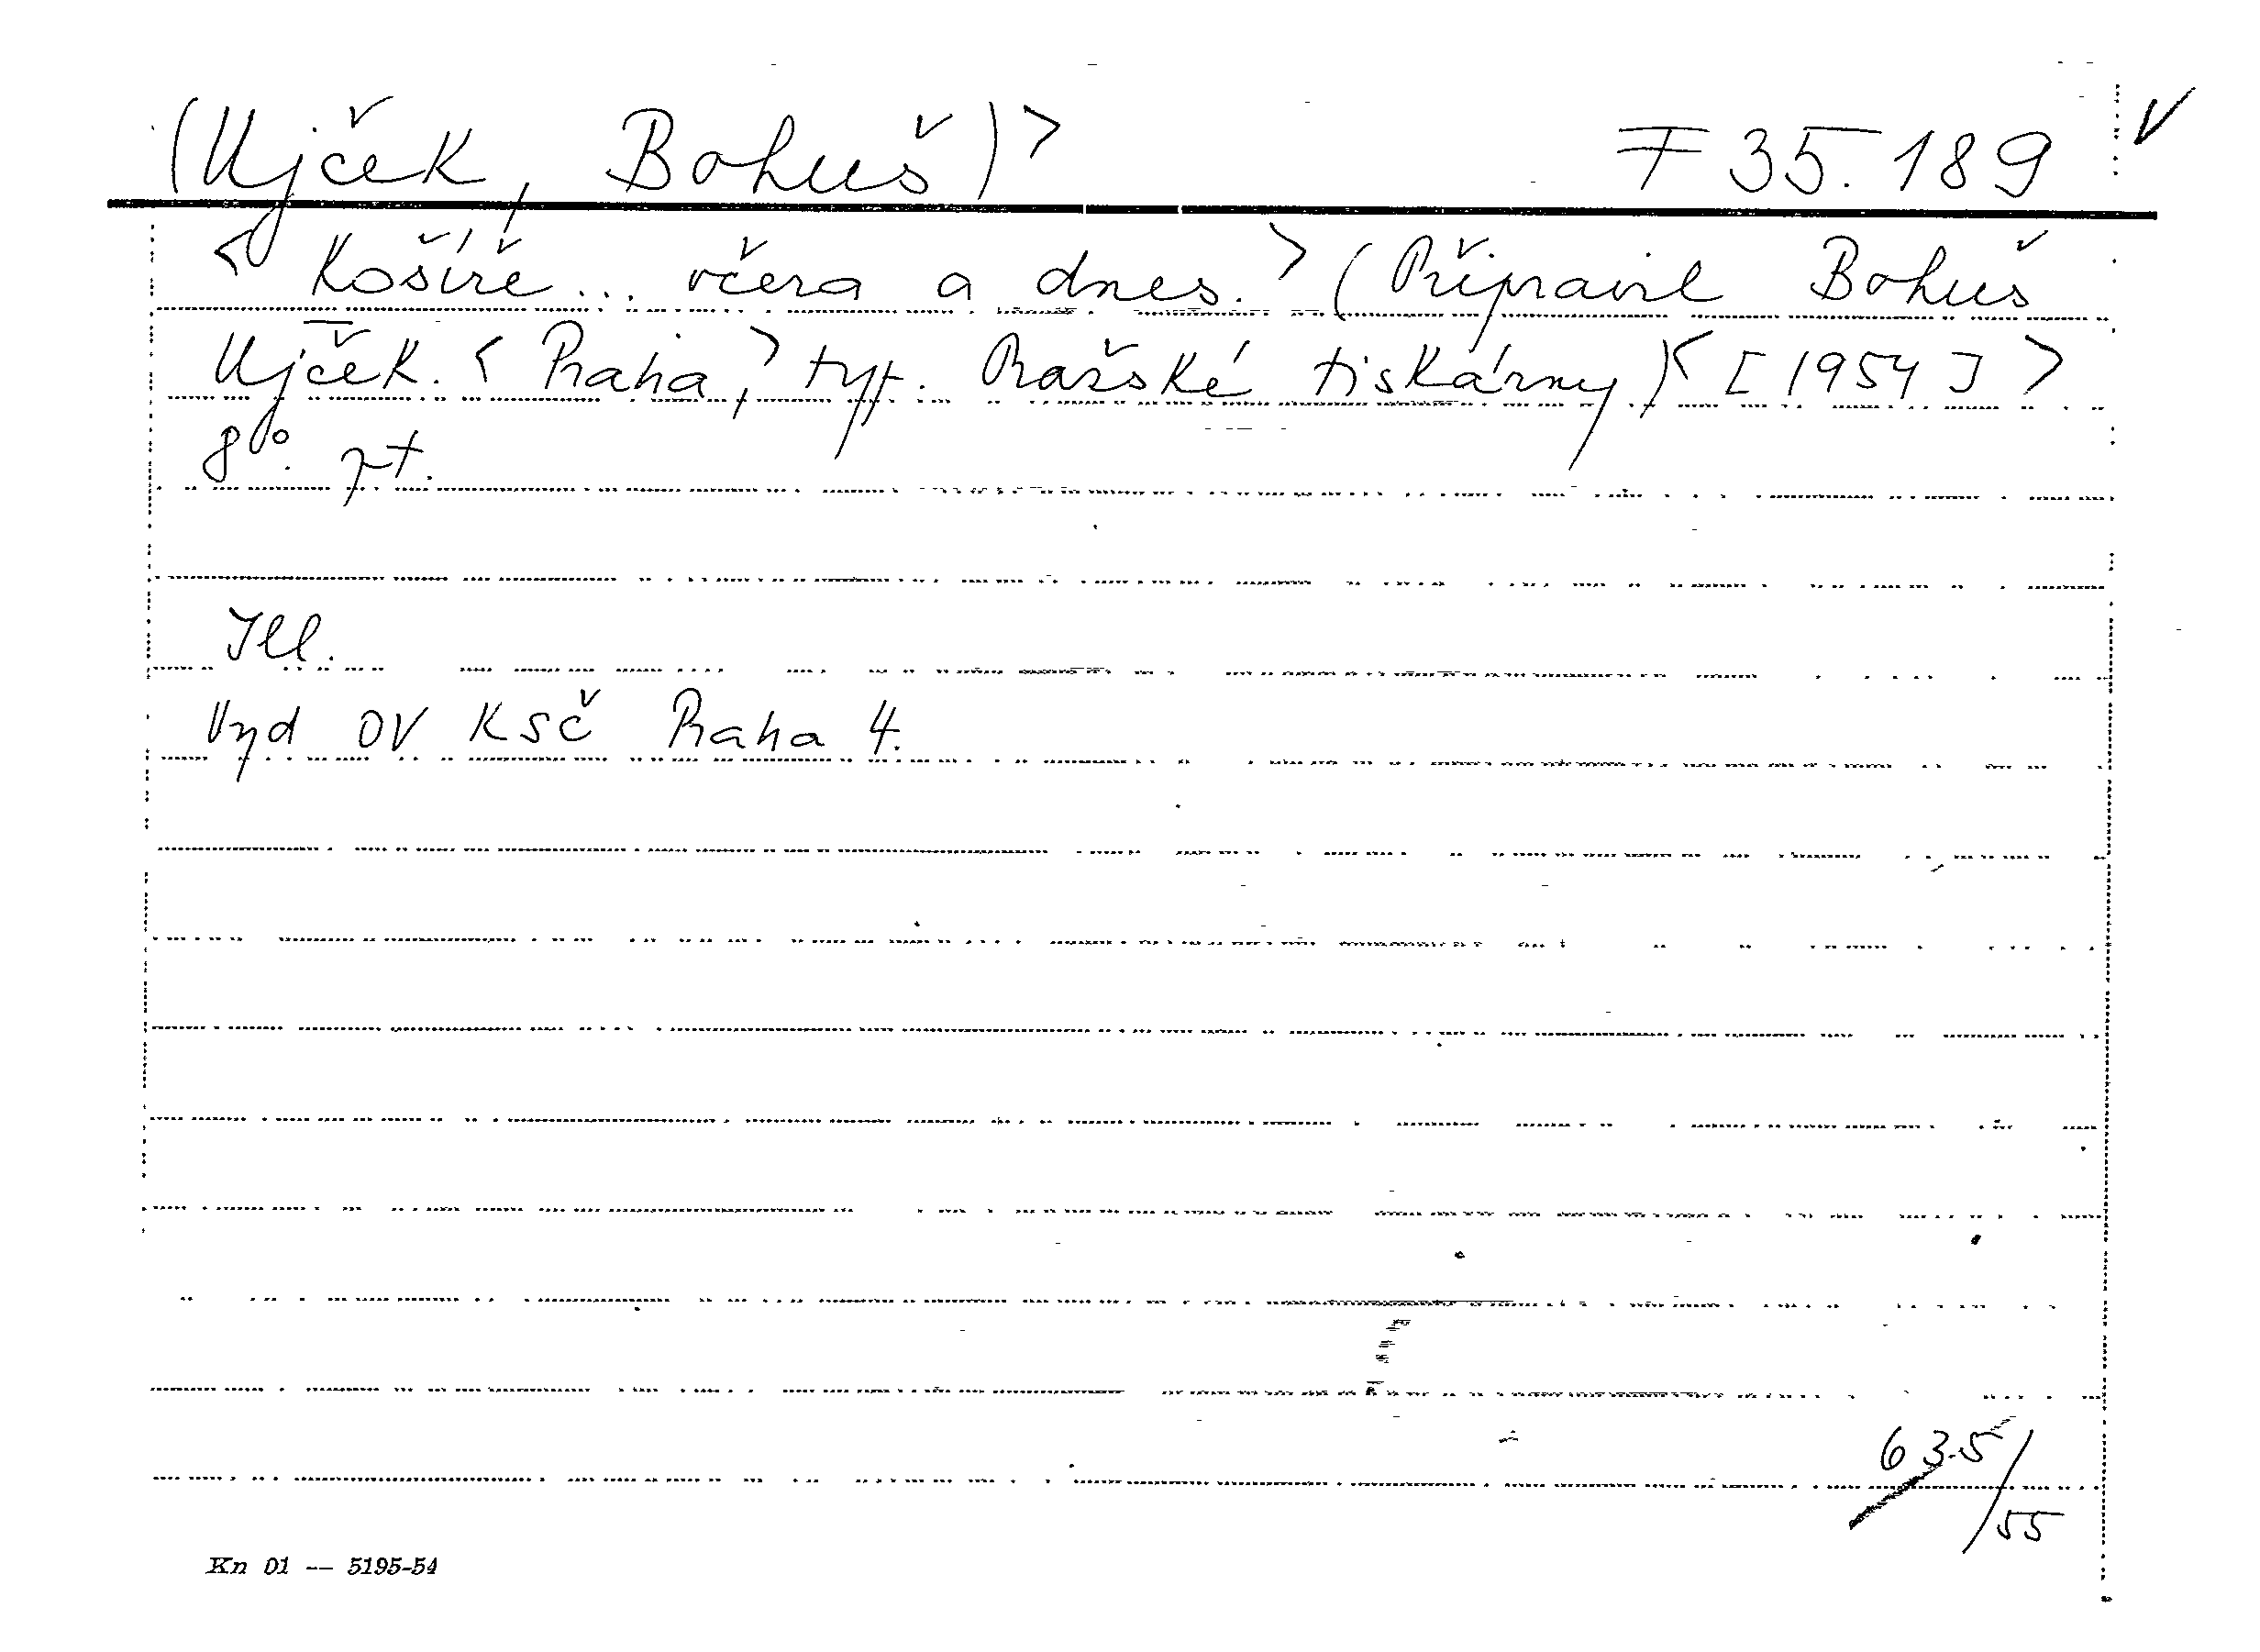 (Ujček, Bohuš)> F 35.189 V
< Košíře... včera a dnes.> (Připravil Bohuš
Ujček. < Praha,> typ. Pražské tiskárny)< [1954] >
8°. pt.
Ill.
Vyd OV KSČ Praha 4.
635/55
Kn 01 -- 5195-54